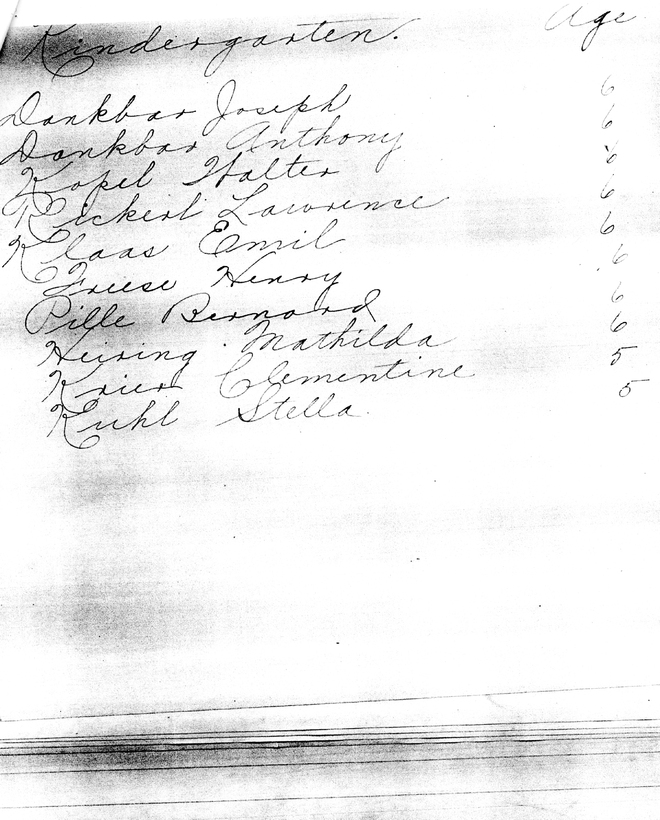 Kindergarten. Age
Dankbar Joseph 6
Dankbar Anthony 6
Kopel Walter 6
Rickert Lawrence 6
Klaas Emil 6
Friese Henry 6
Pille Bernard 6
Heiring Mathilda 6
Krier Clementine 5
Kuhl Stella 5